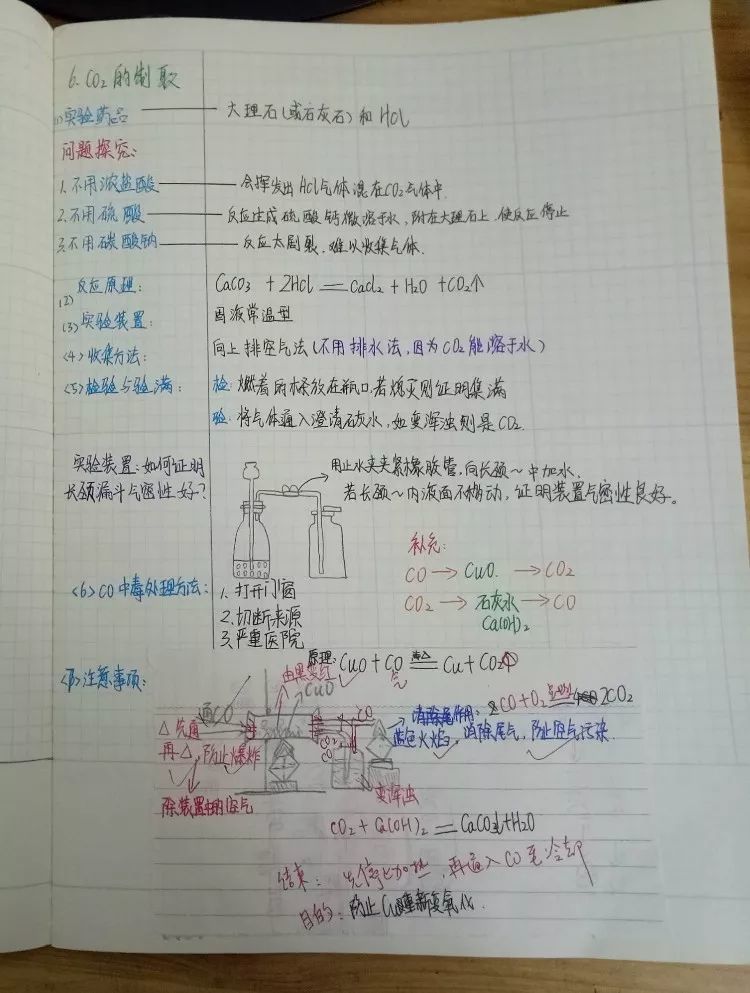 6. CO₂的制取
(1)实验药品 —— 大理石(或石灰石)和HCl
问题探究:
1. 不用浓盐酸 —— 会挥发出HCl气体混在CO₂气体中.
2. 不用硫酸 —— 反应生成硫酸钙微溶于水,附在大理石上,使反应停止
3. 不用碳酸钠 —— 反应太剧裂.难以收集气体.
(2) 反应原理: CaCO₃ + 2HCl == CaCl₂ + H₂O + CO₂↑
(3)实验装置: 固液常温型
(4)收集方法: 向上排空气法(不用排水法,因为CO₂能溶于水)
(5)检验与验满: 检:燃着的木条放在瓶口,若熄灭则证明集满
验:将气体通入澄清石灰水,如变浑浊则是CO₂.
实验装置:如何证明
长颈漏斗气密性好?
用止水夹夹紧橡胶管,向长颈~中加水.
若长颈~内液面不移动,证明装置气密性良好。
补充:
CO → CuO. → CO₂
CO₂ → 石灰水 → CO
Ca(OH)₂
(6)CO中毒处理方法: 1. 打开门窗
2.切断来源
3.严重医院
原理: CuO + CO == Cu + CO₂↑
气
(7)注意事项:
由黑变红
CuO
通CO
CO
△先通
再△,防止爆炸
除装置中的空气
CO₂
CO
消除尾气作用: 2CO + O₂ 点燃 2CO₂
蓝色火焰,消除尾气,防止空气污染.
变浑浊
CO₂ + Ca(OH)₂ == CaCO₃↓+H₂O
结束: 先停止加热,再通入CO至冷却
目的:防止Cu重新被氧化.